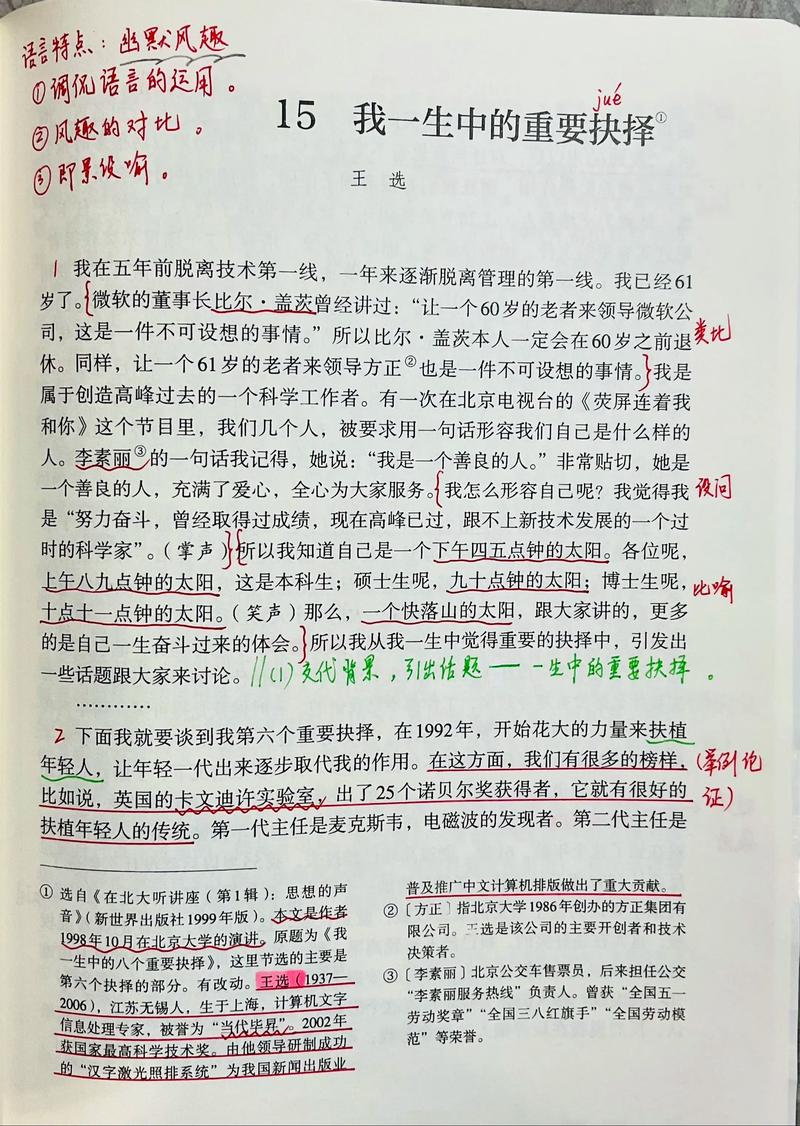 语言特点：幽默风趣
①调侃语言的运用。
②风趣的对比。
③即景设喻。
jué
15 我一生中的重要抉择①
王 选
1 我在五年前脱离技术第一线，一年来逐渐脱离管理的第一线。我已经61
岁了。{微软的董事长比尔·盖茨曾经讲过：“让一个60岁的老者来领导微软公
司，这是一件不可设想的事情。”所以比尔·盖茨本人一定会在60岁之前退
类比
休。同样，让一个61岁的老者来领导方正②也是一件不可设想的事情。}我是
属于创造高峰过去的一个科学工作者。有一次在北京电视台的《荧屏连着我
和你》这个节目里，我们几个人，被要求用一句话形容我们自己是什么样的
人。李素丽③的一句话我记得，她说：“我是一个善良的人。”非常贴切，她是
一个善良的人，充满了爱心，全心为大家服务。{我怎么形容自己呢？我觉得我
设问
是“努力奋斗，曾经取得过成绩，现在高峰已过，跟不上新技术发展的一个过
时的科学家”。（掌声）}{所以我知道自己是一个下午四五点钟的太阳。各位呢，
上午八九点钟的太阳，这是本科生；硕士生呢，九十点钟的太阳；博士生呢，
比喻
十点十一点钟的太阳。（笑声）那么，一个快落山的太阳，跟大家讲的，更多
的是自己一生奋斗过来的体会。}所以我从我一生中觉得重要的抉择中，引发出
一些话题跟大家来讨论。//(1)交代背景，引出话题——一生中的重要抉择。
…………
2 下面我就要谈到我第六个重要抉择，在1992年，开始花大的力量来扶植
年轻人，让年轻一代出来逐步取代我的作用。在这方面，我们有很多的榜样，
(举例论
比如说，英国的卡文迪许实验室，出了25个诺贝尔奖获得者，它就有很好的
证)
扶植年轻人的传统。第一代主任是麦克斯韦，电磁波的发现者。第二代主任是
① 选自《在北大听讲座（第1辑）：思想的声
音》（新世界出版社1999年版）。本文是作者
1998年10月在北京大学的演讲。原题为《我
一生中的八个重要抉择》，这里节选的主要是
第六个抉择的部分。有改动。王选（1937—
2006），江苏无锡人，生于上海，计算机文字
信息处理专家，被誉为“当代毕昇”。2002年
获国家最高科学技术奖。由他领导研制成功
的“汉字激光照排系统”为我国新闻出版业
普及推广中文计算机排版做出了重大贡献。
② 〔方正〕指北京大学1986年创办的方正集团有
限公司。王选是该公司的主要开创者和技术
决策者。
③ 〔李素丽〕北京公交车售票员，后来担任公交
“李素丽服务热线”负责人。曾获“全国五一
劳动奖章”“全国三八红旗手”“全国劳动模
范”等荣誉。